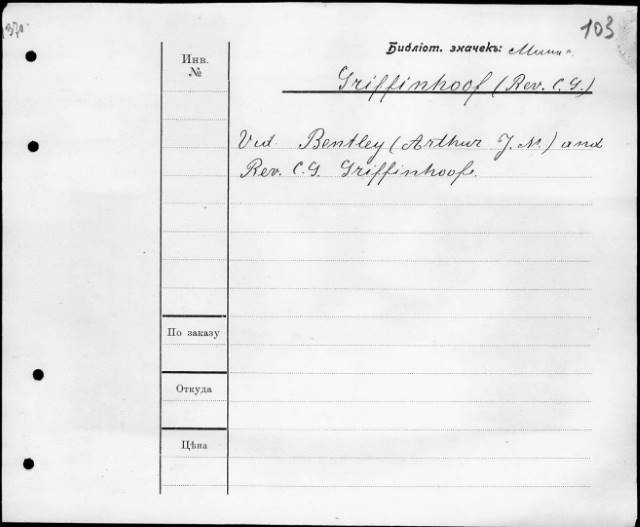 370.
103
Библіот. значекъ:
Инв.
№
Griffinhoof (Rev. C. G.)
Vid. Bentley (Arthur J. N.) and
Rev. C. G. Griffinhoof.
По заказу
Откуда
Цѣна